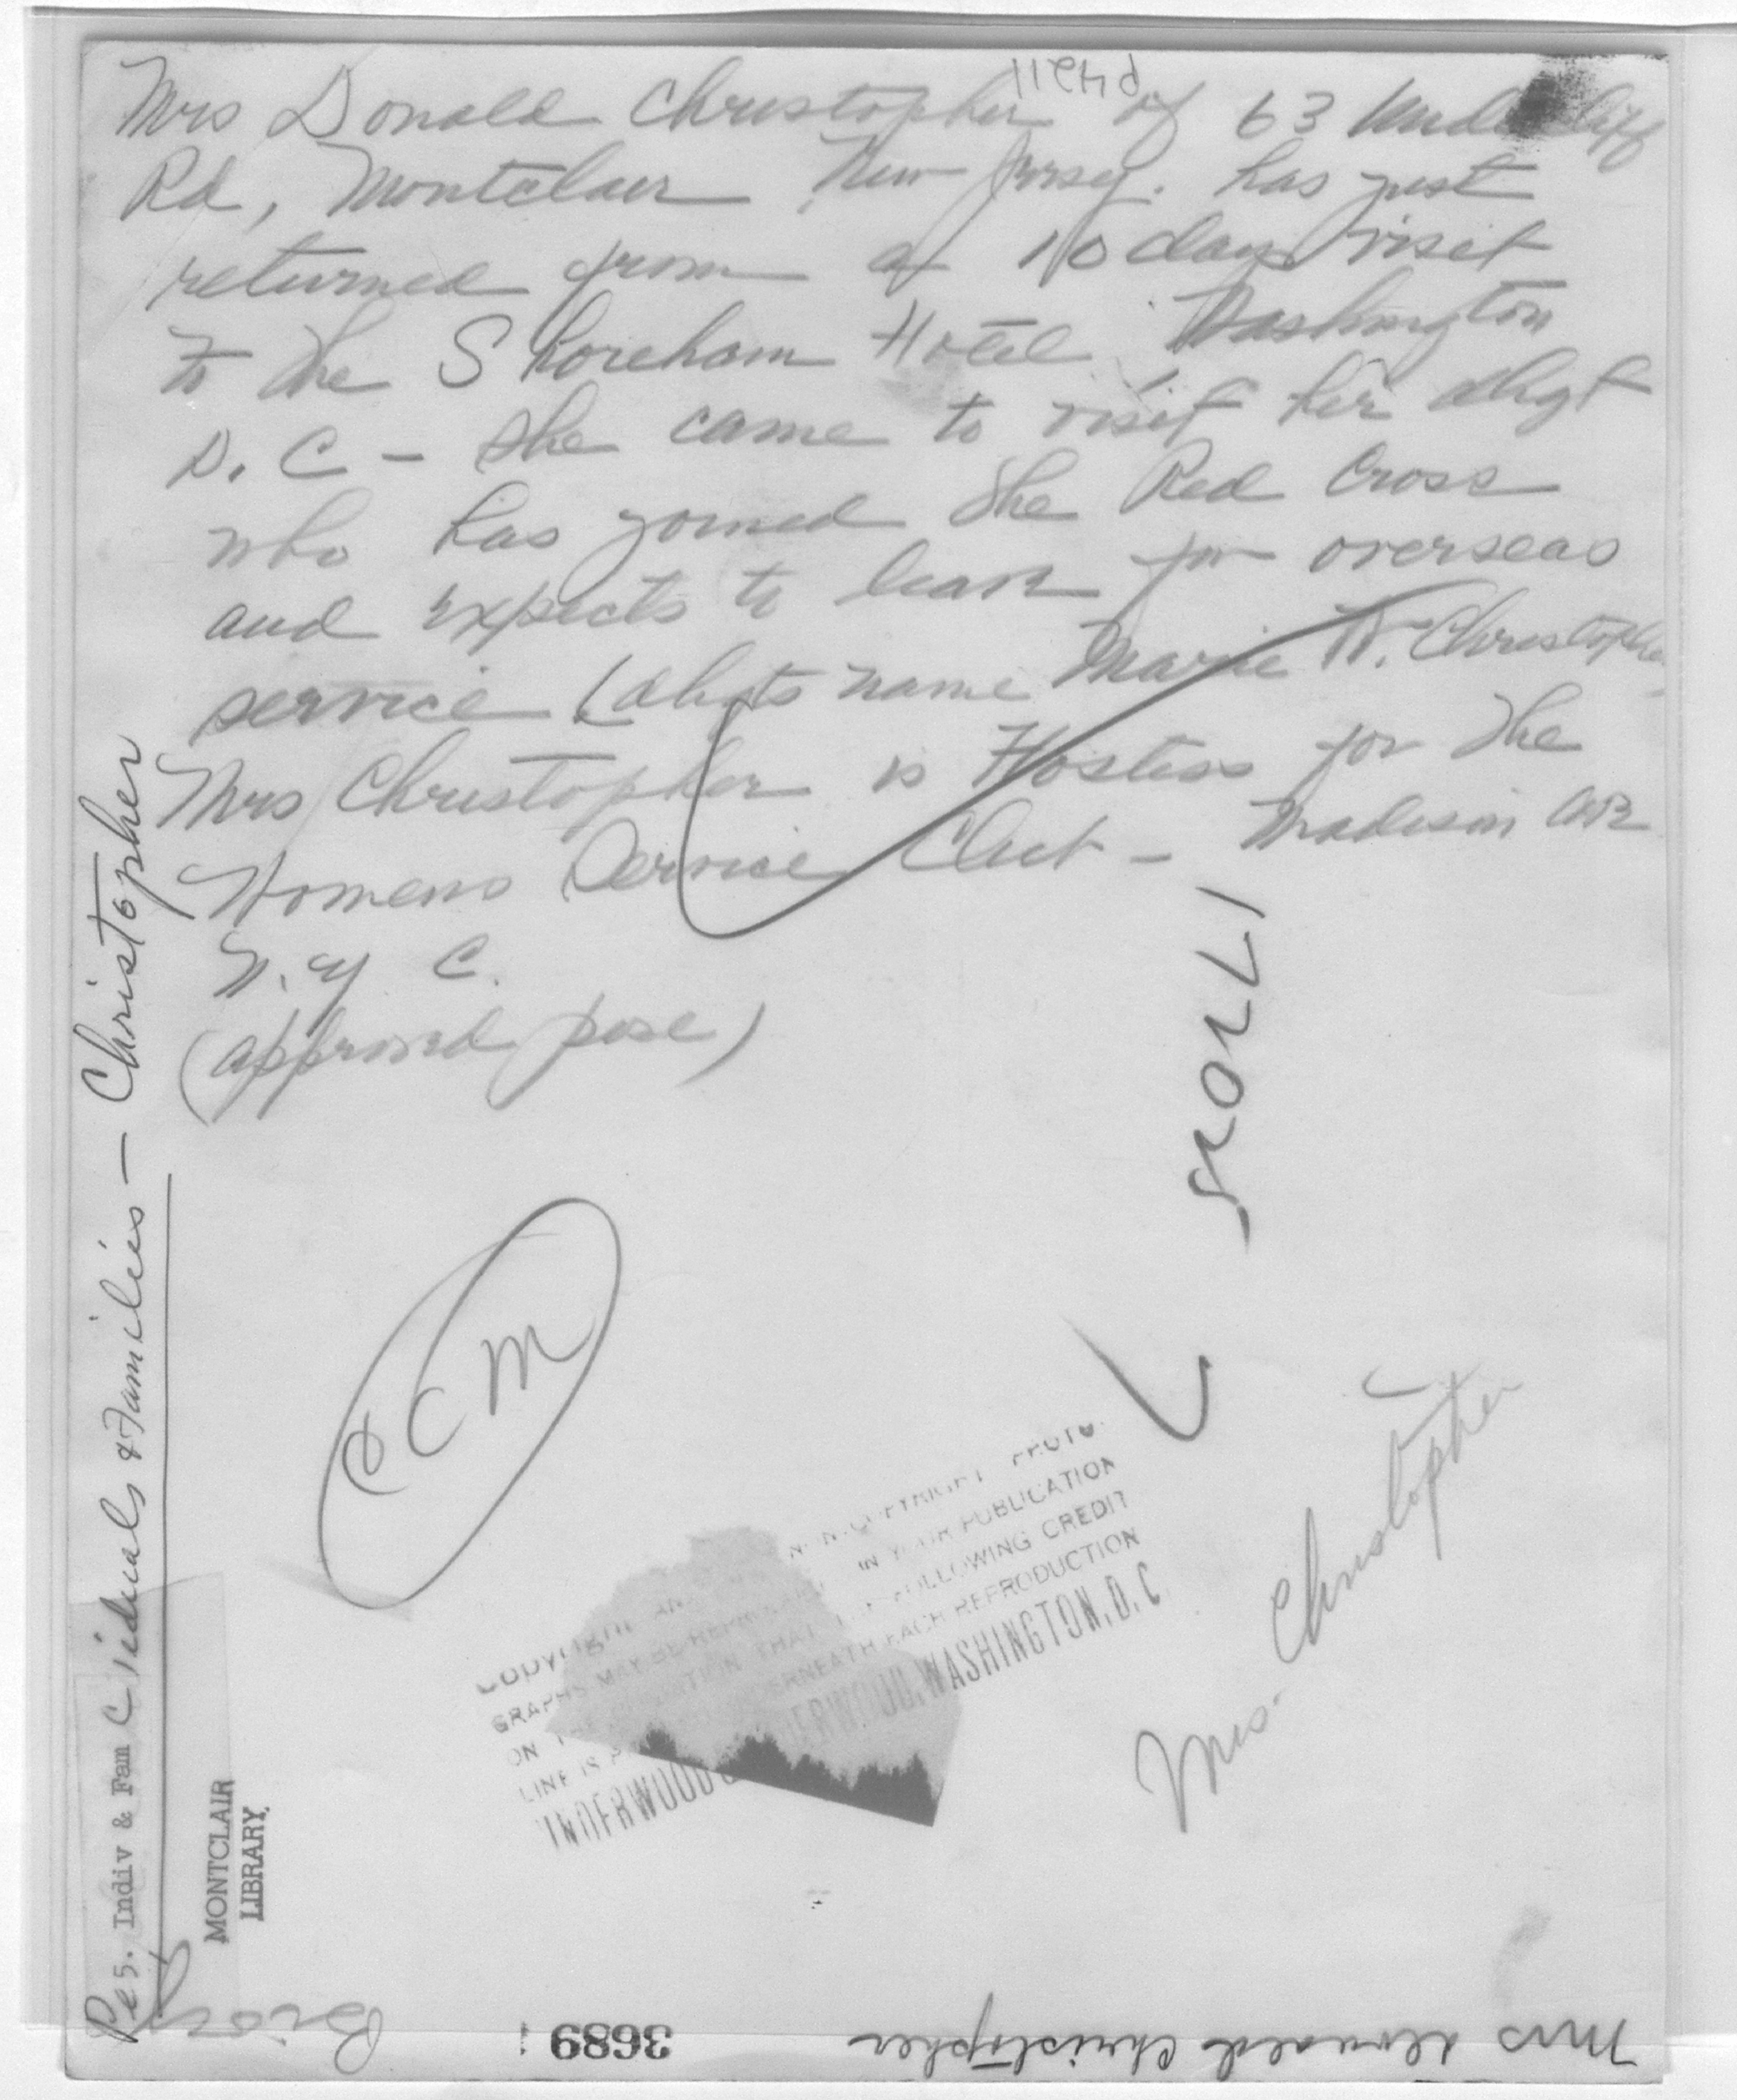 P4211
Mrs Donald Christopher of 63 Undercliff
Rd, Montclair New Jersey. has just
returned from a 10 day visit
to the Shoreham Hotel Washington
D. C - She came to visit her dhgt
who has joined the Red Cross
and expects to leave for overseas
service (dhgts name Marie W. Christopher
Mrs Christopher is Hostess for the
Womens Service Club - Madison Ave
N. Y C.
(approved pose)
CM
Mrs. Christopher
COPYRIGHT AND NON-COPYRIGHT PHOTO-
GRAPHS MAY BE REPRODUCED IN YOUR PUBLICATION
ON THE CONDITION THAT THE FOLLOWING CREDIT
LINE IS PLACED UNDERNEATH EACH REPRODUCTION
UNDERWOOD & UNDERWOOD, WASHINGTON, D. C.
Pes. Indiv & Fam C iduals & Families - Christopher
MONTCLAIR
LIBRARY
3689
Mrs Donald Christopher